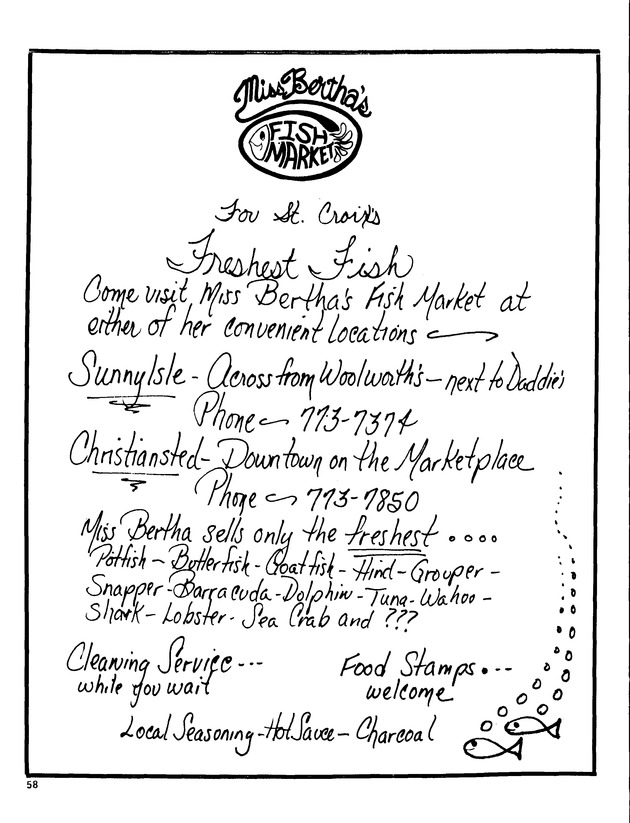 Miss Bertha's
FISH
MARKET
For St. Croix's
Freshest Fish
Come visit Miss Bertha's Fish Market at
either of her convenient locations
Sunny Isle - Across from Woolworth's - next to Daddie's
Phone 773-7374
Christiansted - Downtown on the Marketplace
Phone 773-7850
Miss Bertha sells only the freshest ....
Potfish - Butterfish - Goatfish - Hind - Grouper -
Snapper - Barracuda - Dolphin - Tuna - Wahoo -
Shark - Lobster - Sea Crab and ???
Cleaning Service ---
while you wait
Food Stamps . ---
welcome
Local Seasoning - Hot Sauce - Charcoal
58